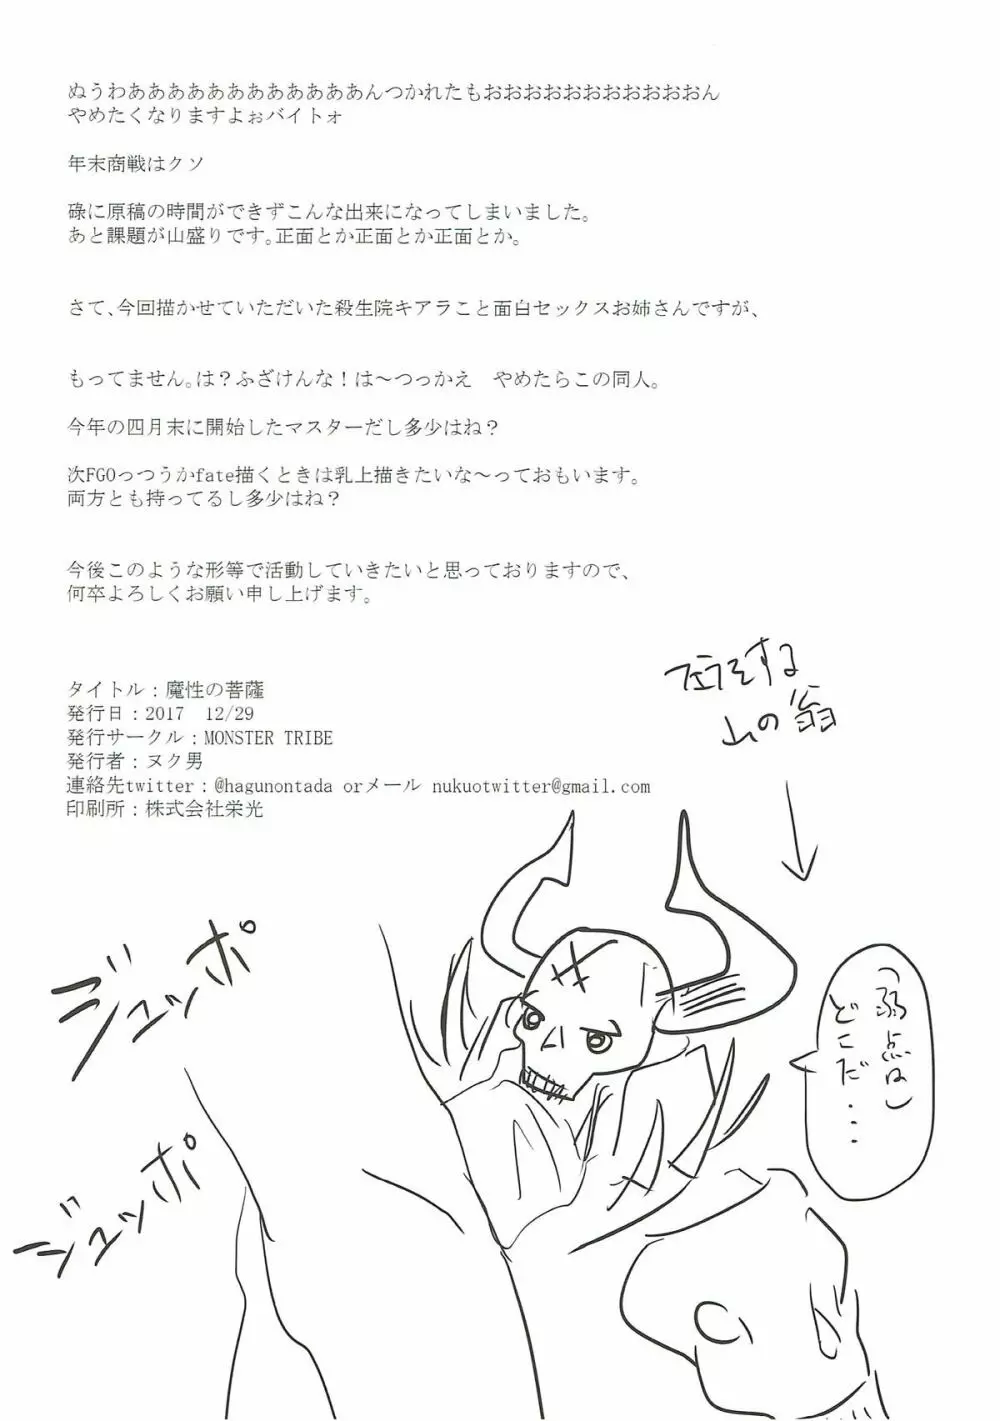 ぬうわああああああああああああんつかれたもおおおおおおおおおおおおん
やめたくなりますよぉバイトォ
年末商戦はクソ
碌に原稿の時間ができずこんな出来になってしまいました。
あと課題が山盛りです。正面とか正面とか正面とか。
さて、今回描かせていただいた殺生院キアラこと面白セックスお姉さんですが、
もってません。は？ふざけんな！は～つっかえ　やめたらこの同人。
今年の四月末に開始したマスターだし多少はね？
次FGOっつうかfate描くときは乳上描きたいな～っておもいます。
両方とも持ってるし多少はね？
今後このような形等で活動していきたいと思っておりますので、
何卒よろしくお願い申し上げます。
タイトル：魔性の菩薩
発行日：2017　12/29
発行サークル：MONSTER TRIBE
発行者：ヌク男
連絡先twitter：@hagunontada orメール nukuotwitter@gmail.com
印刷所：株式会社栄光
フェラをする
山の翁
ジュッポ
ジュッポ
(弱点は
どこだ・・・